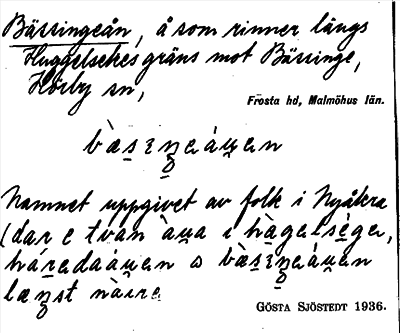 Bässingeån, å som rinner längs
Huggelsekes gräns mot Bässinge,
Hörby sn,
Frosta hd, Malmöhus län.
bàsıŋeáųen
Namnet uppgivet av folk i Nyåkra
(dar e tvan àųa i hàgelsége,
háredaáųen o bàsıŋeáųen
læŋst nàıre
GÖSTA SJÖSTEDT 1936.